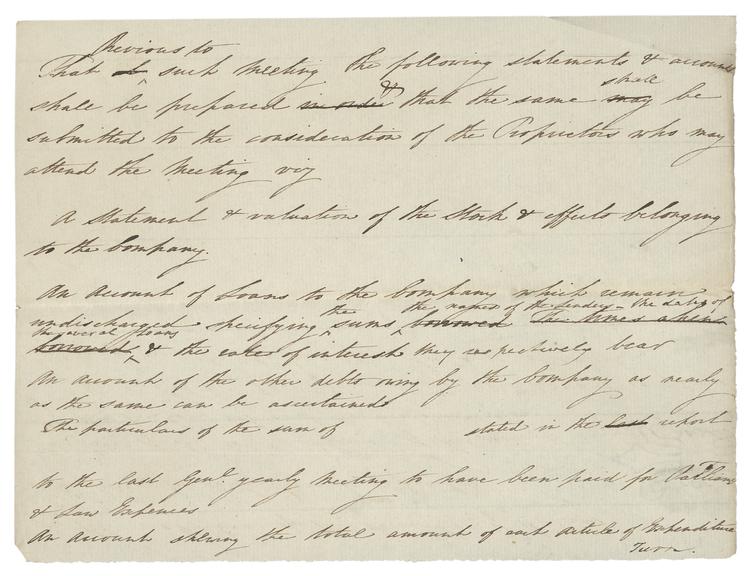 Previous to
That at such Meeting the following statements & accounts
shall
shall be prepared in order & that the same may be
submitted to the consideration of the Proprietors who may
attend the Meeting viz
A statement & valuation of the Stock & effects belonging
to the Company.
An account of Loans to the Company which remain
the names of the Lenders – the dates of
undischarged specifying the sums borrowed The times when
the several Loans
borrowed & the rate of interest they respectively bear
An account of the other debts owing by the Company as nearly
as the same can be ascertained
The particulars of the sum of stated in the last report
to the last Genl. yearly Meeting to have been paid for
& Law Expences
An account shewing the total amount of each article of Expenditure
Turn.